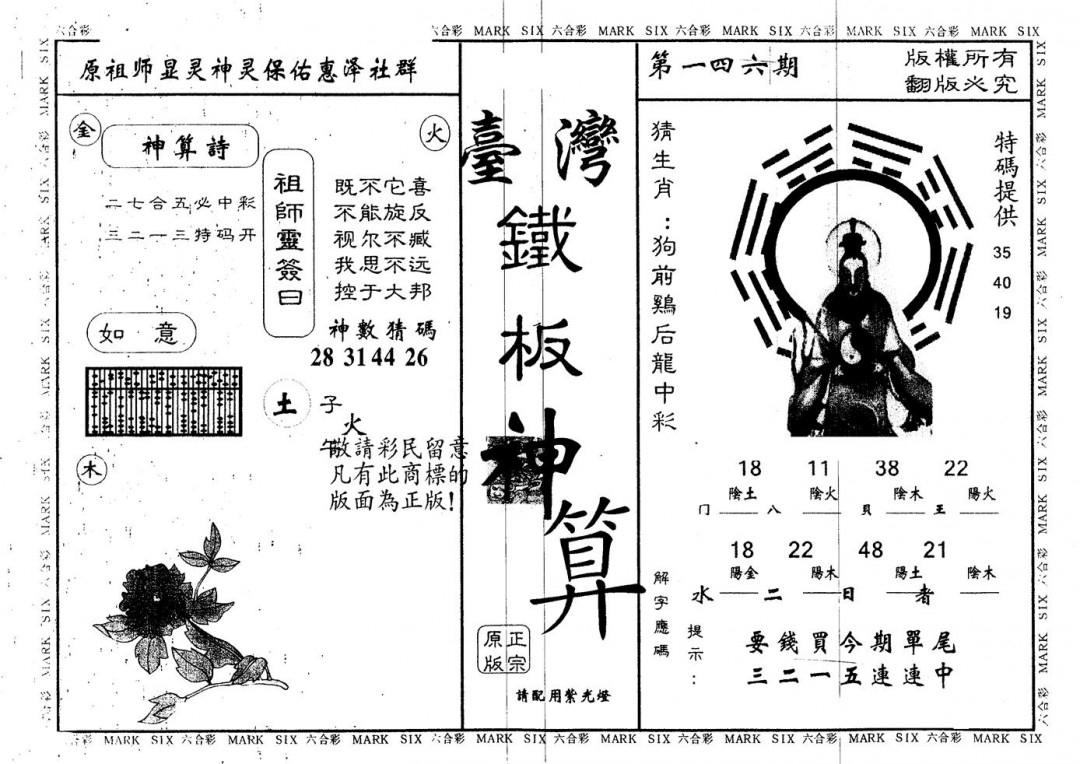 六合彩 六合彩 MARK SIX 六合彩 MARK SIX 六合彩 MARK SIX 六合彩 MARK SIX 六合彩 MARK SIX
原祖师显灵神灵保佑惠泽社群
金
神算詩
火
二七合五必中彩
三二一三特码开
祖師靈簽曰
既不它喜
不能旋反
视尔不臧
我思不远
控于大邦
神數猜碼
28 31 44 26
如意
土
子
火
午
敬請彩民留意
凡有此商標的
版面為正版!
木
臺灣
鐵
板
神
算
正宗
原版
請配用紫光燈
第一四六期
版權所有
翻版必究
猜生肖:狗前鷄后龍中彩
特碼提供
35
40
19
18 11 38 22
陰土 陰火 陰木 陽火
门 八 貝 王
18 22 48 21
陽金 陽木 陽土 陰木
水 二 日 者
解字應碼
提示:
要錢買今期單尾
三二一五連連中
六合彩 MARK SIX 六合彩 MARK SIX 六合彩 MARK SIX 六合彩 MARK SIX 六合彩 MARK SIX 六合彩 MARK SIX 六合彩 MARK SIX 六合彩 MARK SIX